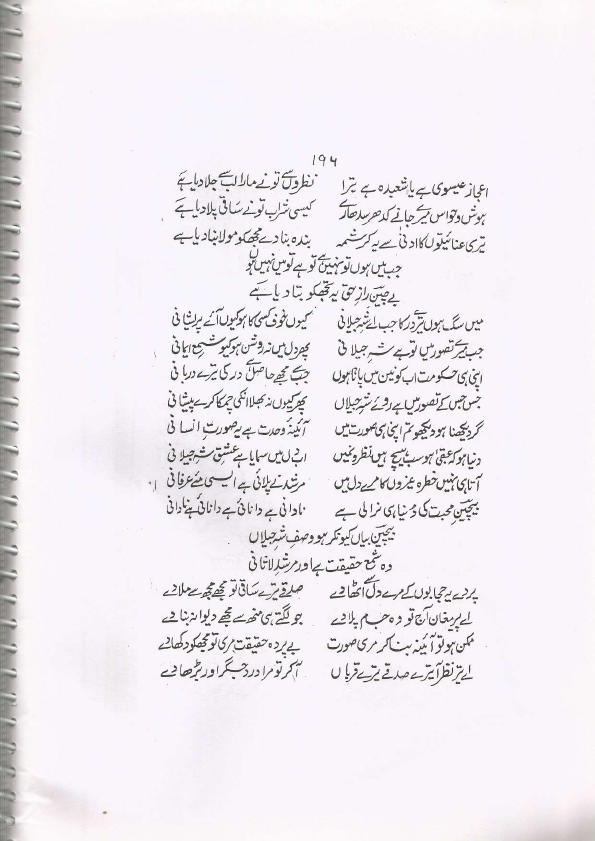 ۱۹۶
اعجاز عیسوی ہے یا شعبدہ ہے ترا نظروں سے تو نے مارا لب سے جلا دیا ہے
ہوش و حواس میرے جانے کدھر سدھارے کیسی شراب تو نے ساقی پلا دیا ہے
تیری عنائیتوں کا ادنیٰ سے یہ کرشمہ بندہ بنا دے مجھکو مولا بنا دیا ہے
جب میں ہوں تو نہیں ہے تو ہے تو میں نہیں ہوں
بے چین راز حق یہ تجھکو بتا دیا ہے
میں سگ ہوں تیرے در کا جب اے شہ جیلانی کیوں خوف کسی کا ہو کیوں آئے پریشانی
جب میرے تصور میں تو ہے شہ جیلانی پھر دل میں نہ روشن ہو کیو شمع ایمانی
اپنی ہی حکومت اب کونین میں پاتا ہوں جب سے مجھے حاصل ہے در کی ترے دربانی
جس جس کے تصور میں ہے روئے شہ جیلاں پھر کیوں نہ بھلا انکی چمکا کرے پیشانی
گر دیکھنا ہو دیکھو تم اپنی ہی صورت میں آئینہ وحدت ہے یہ صورت انسانی
دنیا ہو کہ عقبیٰ ہو سب ہیچ ہیں نظروں میں اب دل میں سمایا ہے عشق شہ جیلانی
آتا ہی نہیں خطرہ غیروں کا مرے دل میں مرشد نے پلائی ہے ایسی مئے عرفانی
بیچین محبت کی دنیا ہی نرالی ہے نادانی ہے دانائی ہے دانائی ہے نادانی
بیچین بیاں کیونکر ہو وصف شہ جیلاں
وہ شمع حقیقت ہے اور مرشد لاثانی
پردے یہ حجابوں کے مرے دل سے اٹھا دے صدقے ترے ساقی تو مجھے مجھ سے ملا دے
اے پیر مغاں آج تو وہ جام پلا دے جو لگتے ہی منھ سے مجھے دیوانہ بنا دے
ممکن ہو تو آئینہ بنا کر مری صورت بے پردہ حقیقت مری تو مجھکو دکھا دے
اے تیر نظر آ ترے صدقے ترے قرباں آ کر تو مرا درد جگر اور بڑھا دے